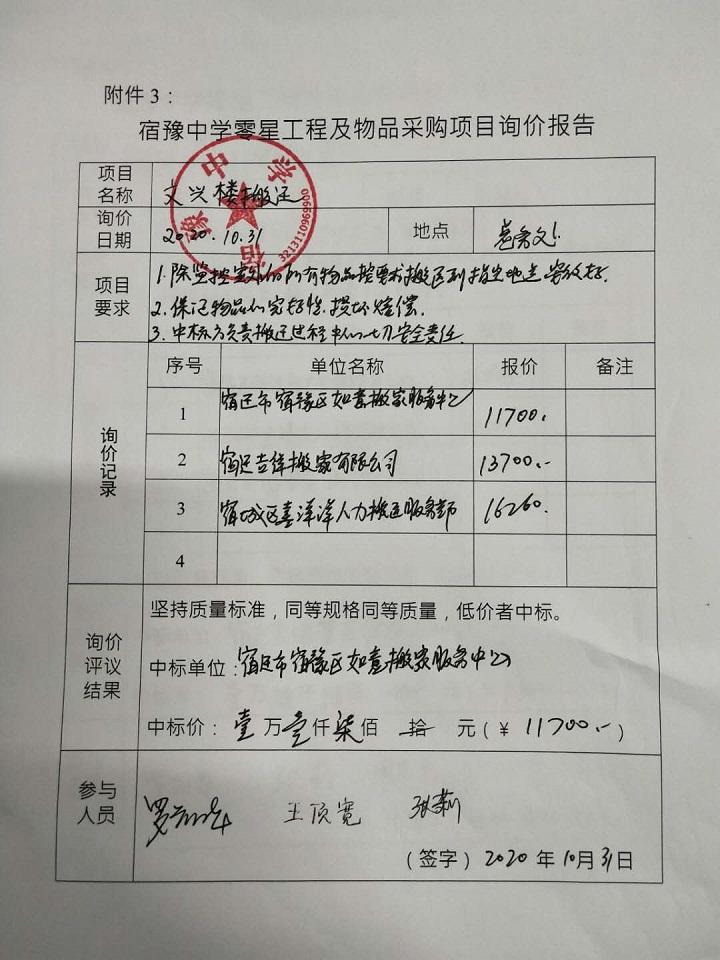 附件3：
宿豫中学零星工程及物品采购项目询价报告
项目
名称
文兴楼搬迁
询价
日期
2020.10.31
地点
项目
要求
1.除监控室外的所有物品按要求搬区到指定地点安放好.
2.保证物品的完好性.损坏赔偿.
3.中标方负责搬迁过程中的一切安全责任.
询价记录
序号 单位名称 报价 备注
1 宿迁市宿豫区如意搬家服务中心 11700.
2 宿迁吉祥搬家有限公司 13700.-
3 宿城区喜洋洋人力搬运服务部 16260.
4
询价
评议
结果
坚持质量标准，同等规格同等质量，低价者中标。
中标单位：宿迁市宿豫区如意搬家服务中心
中标价：壹万壹仟柒佰 拾 元(￥11700.-)
参与
人员
王顶宽 张莉
(签字) 2020年10月31日
豫中学
宿
3213110969900